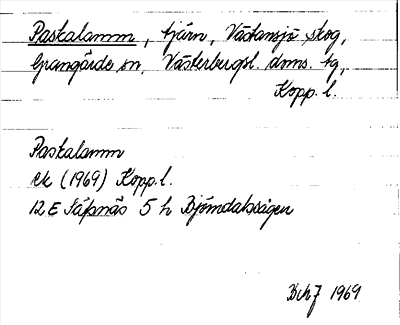 Paskalamm, tjärn, Västansjö skog,
Grangärde sn, Västerbergsl. doms. tg,
Kopp. l.
Paskalamm
ek (1969) Kopp. l.
12 E Säfsnäs 5 h Björndalsågen
1969